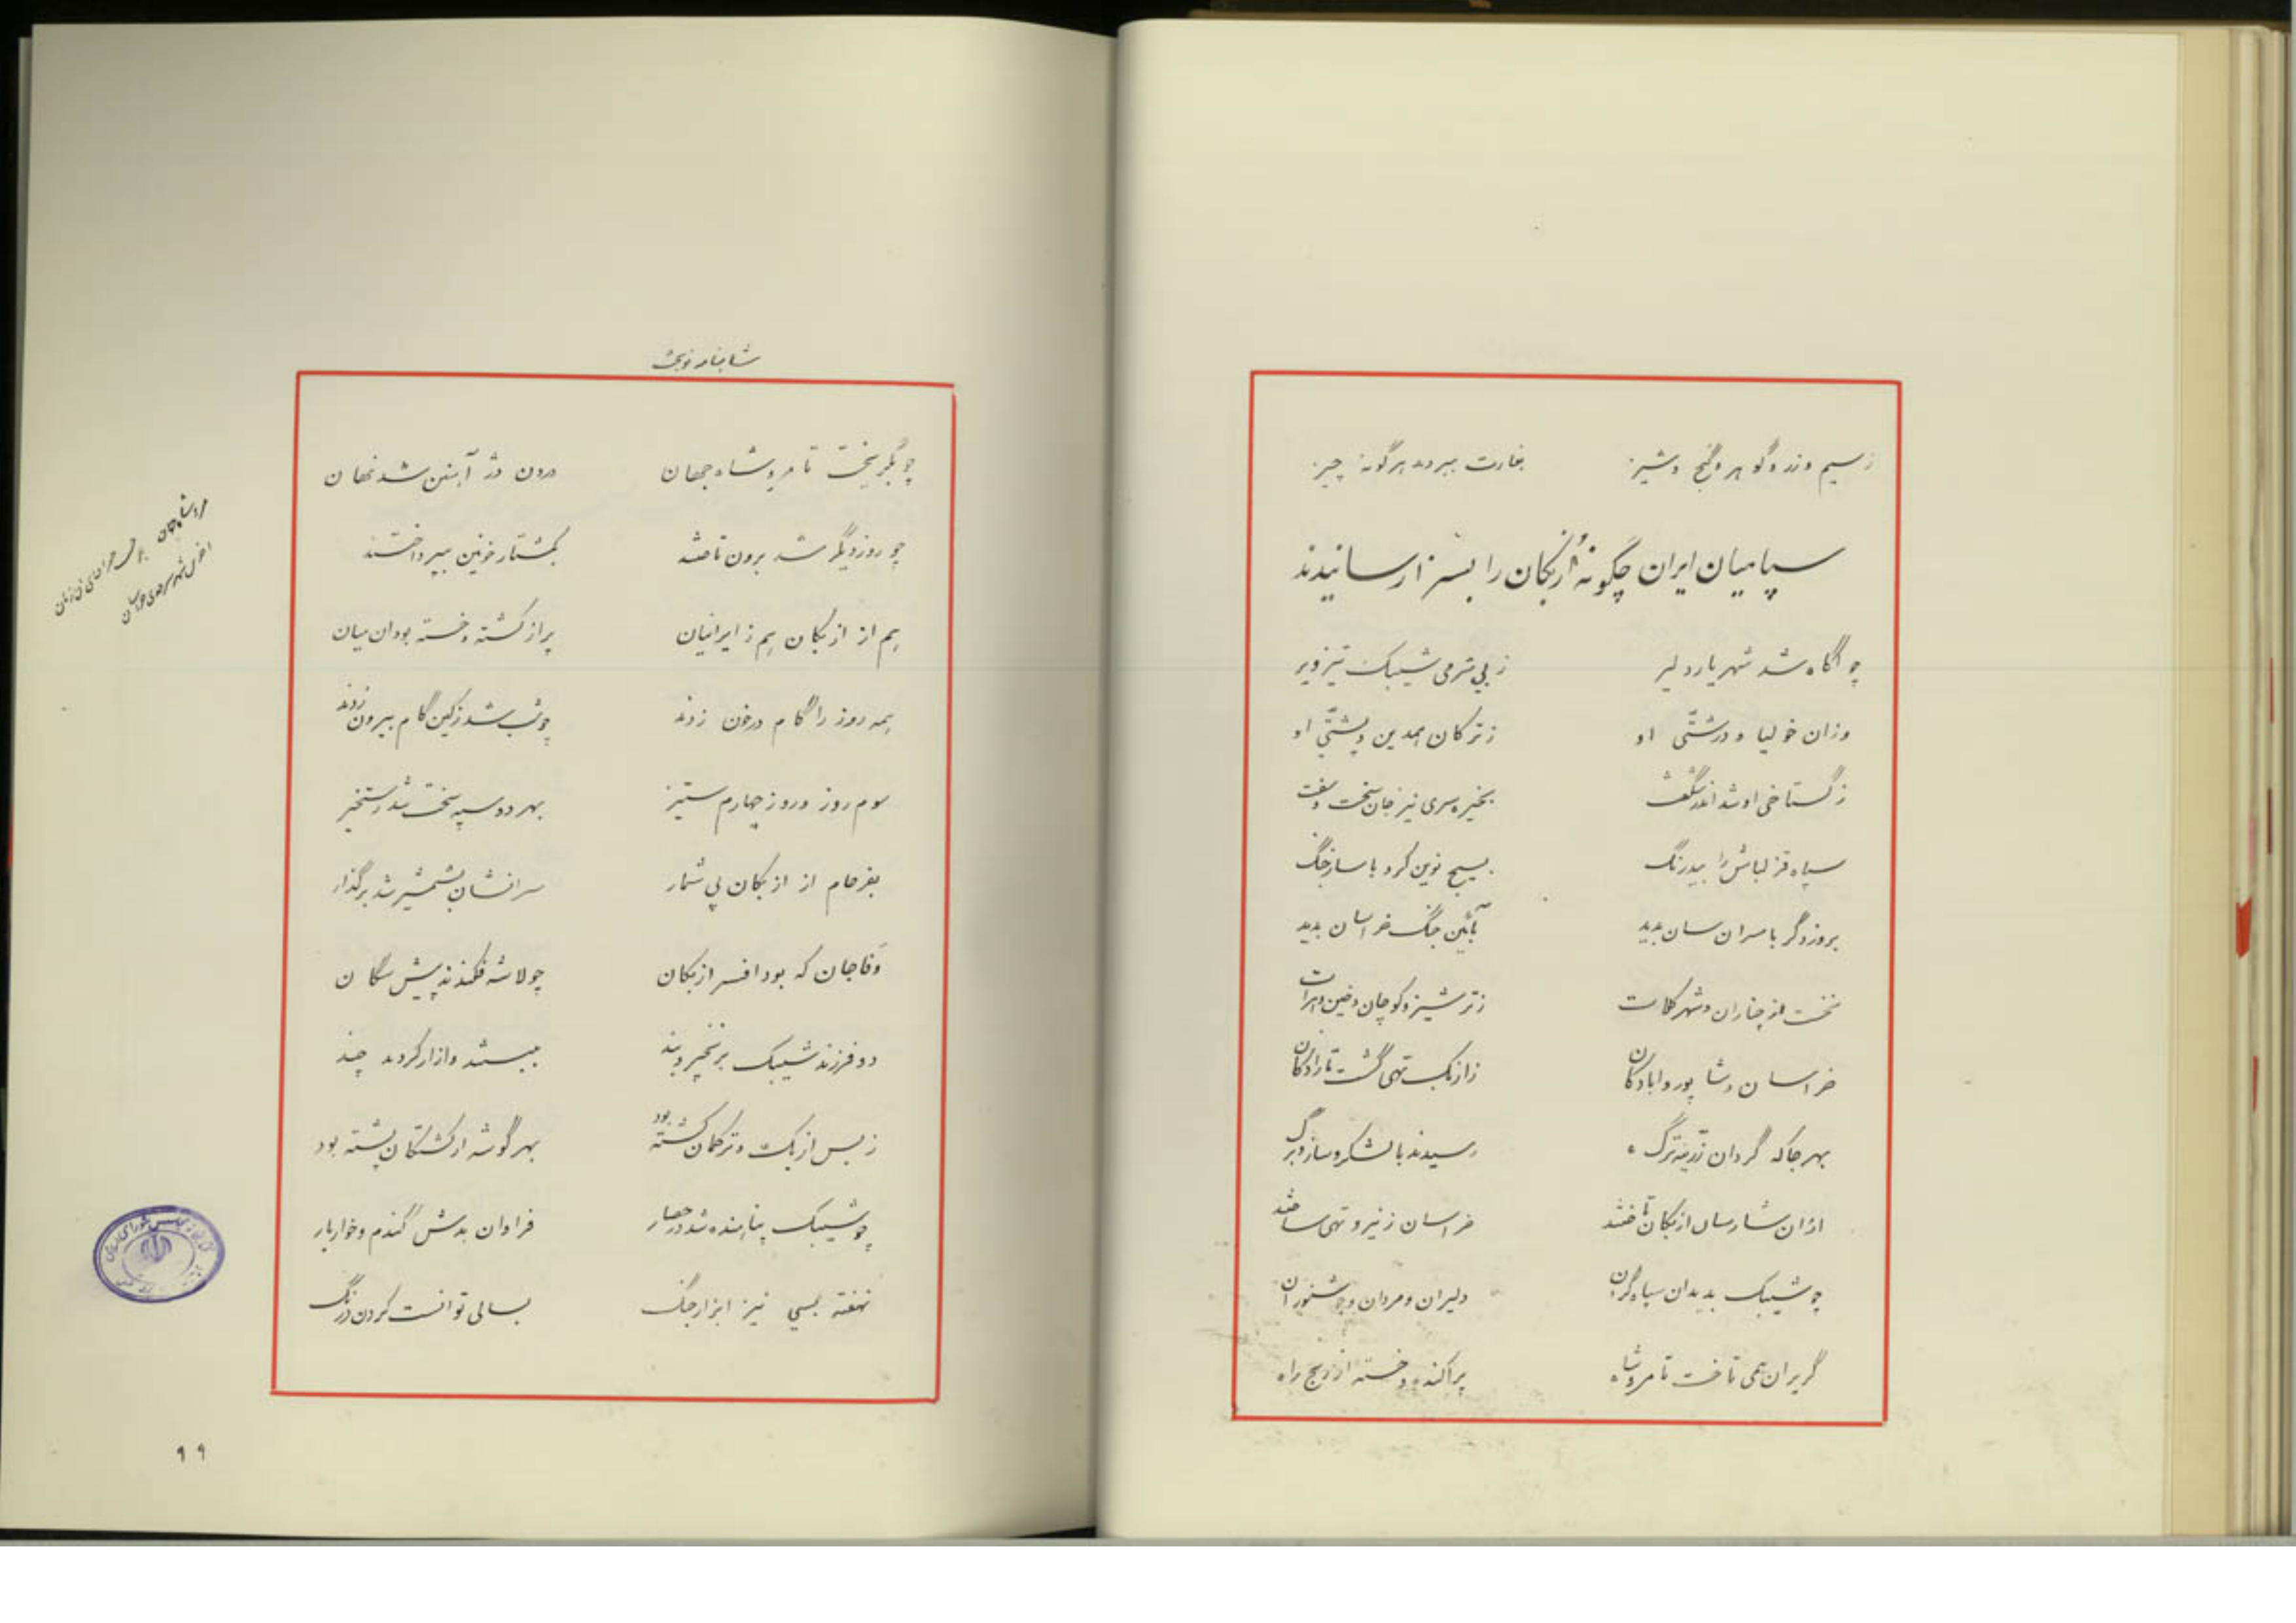 ز سیم و زر و گوهر و گنج و شیز بغارت ببردند هرگونه چیز
سپاهیان ایران چگونه اُزبکان را بسزا رسانیدند
چو آگاه شد شهریار دلیر ز بی شرمی شیبک تیز ویر
وزان خولیا و درشتّی او ز ترکان همدین و پشتّی او
ز گستاخی او شد اندر شگفت بخیره سری نیز جان سخت و سفت
سپاه قزلباش را بیدرنگ بسیج نوین کرد با ساز جنگ
بروز دگر با سران سان بدید بآئین جنگ خراسان بدید
نخست از چناران و شهر کلات ز ترشیز و کوچان و خین و هرات
خراسان و شاپور و ابادکان ز ازبک تهی گشت تا رادکان
بهر جا که گردان زرّینه ترگ رسیدند با لشکر و ساز و برگ
ازان شارسان ازبکان تاختند خراسان ز نیرو تهی ساختند
چو شیبک بدید ان سپاه گران دلیران و مردان و جوشنوران
گریزان همی تاخت تا مرو شاه پراکنده و خسته از رنج راه
شاهنامه نوبخت
چو بگریخت تا مرو شاه جهان درون دژ آهنین شد نهان
چو روز دیگر شد برون تاختند بکشتار خونین بپرداختند
هم از ازبکان هم ز ایرانیان پر از کشته و خسته بود ان میان
همه روز را گام در خون زدند چو شب شد ز کین گام بیرون زدند
سوم روز و روز چهارم ستیز بهر دو سپه سخت شد رستخیز
بفرجام از ازبکان بی شمار سرانشان بشمشیر شد برگذار
وفاجان که بود افسر ازبکان چو لاشه فکندند پیش سگان
دو فرزند شیبک بزنجیر و بند ببستند و ازار کردند چند
ز بس ازبک و ترکمان کشته بود بهر گوشه از کشتگان پشته بود
چو شیبک پناهنده شد در حصار فراوان بدش گندم و خواربار
نهفته بسی نیز ابزار جنگ بسالی توانست کردن درنگ
۹۹